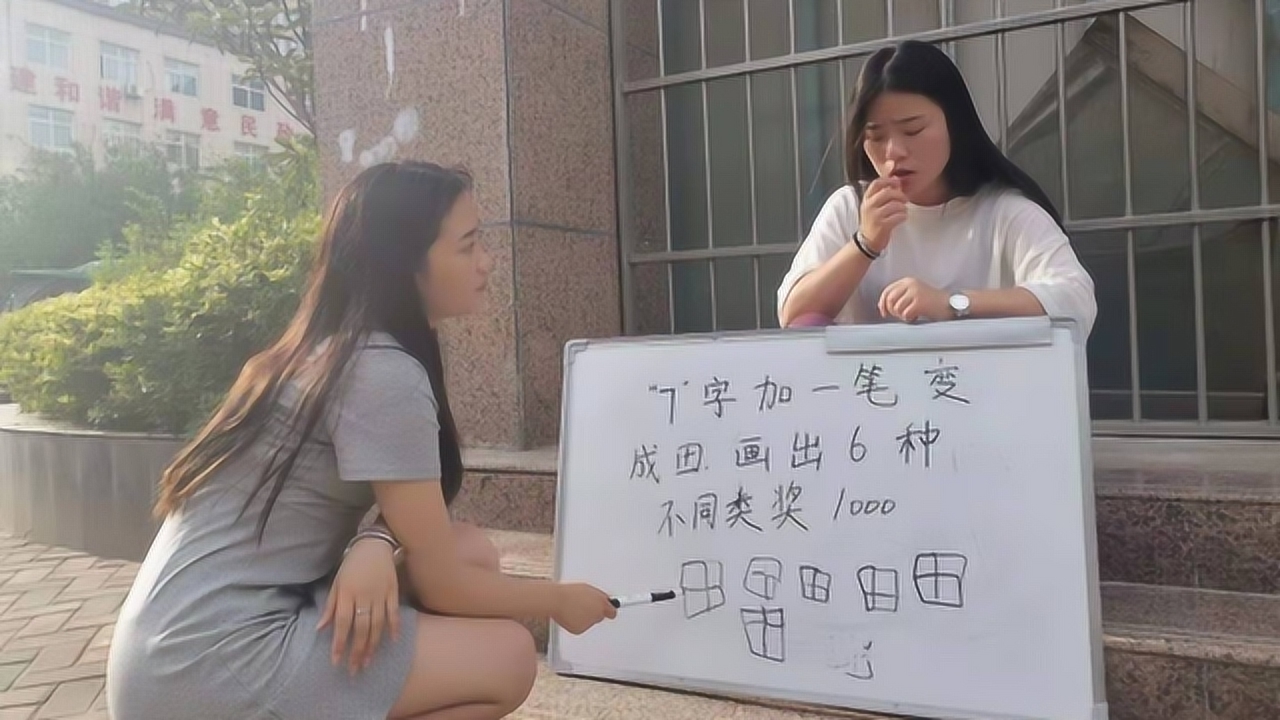 建和谐 满意民政
"7"字加一笔变
成田.画出6种
不同类奖1000